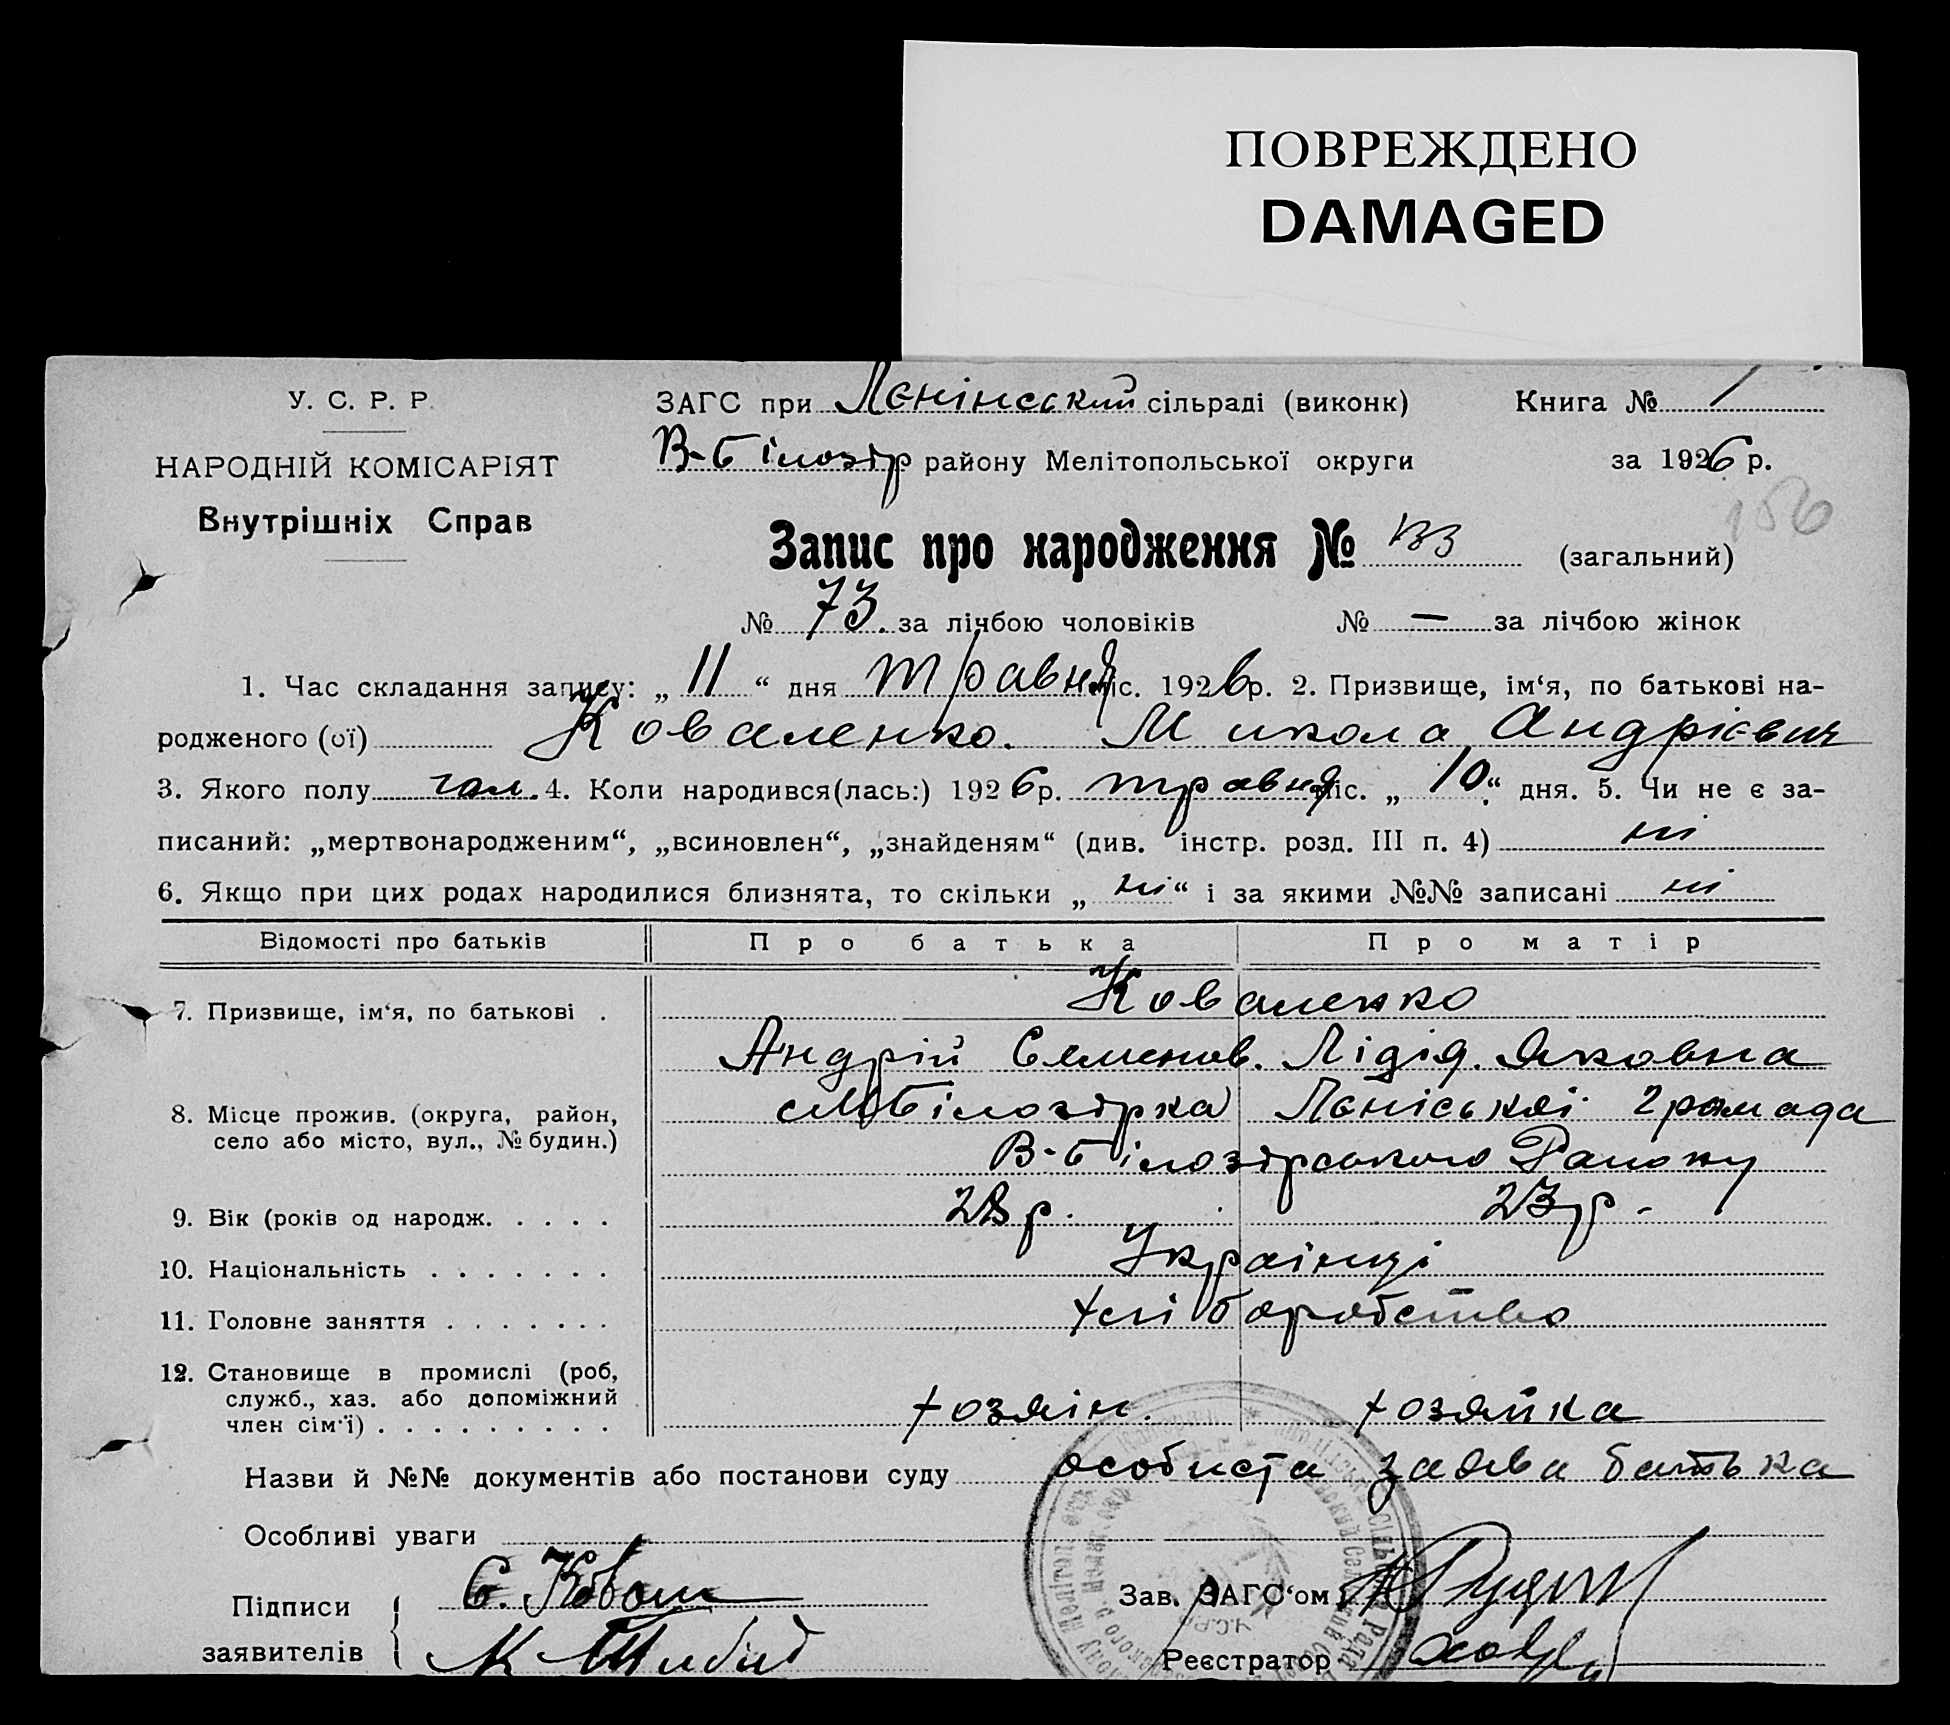 ПОВРЕЖДЕНО
DAMAGED
У. С. Р. Р.
НАРОДНІЙ КОМІСАРІЯТ
Внутрішніх Справ
ЗАГС при Ленінський сільраді (виконк)
Книга № 1
В-Білозір району Мелітопольської округи
за 1926 р.
156
Запис про народження № 133 (загальний)
№ 73. за лічбою чоловіків № — за лічбою жінок
1. Час складання запису: „ 11 “ дня травня міс. 1926 р. 2. Призвище, ім‘я, по батькові на-
родженого (ої) Коваленко. Микола Андрієвич
3. Якого полу чол. 4. Коли народився(лась:) 1926 р. травня міс. „ 10 “ дня. 5. Чи не є за-
писаний: „мертвонародженим“, „всиновлен“, „знайденям“ (див. інстр. розд. III п. 4) ні
6. Якщо при цих родах народилися близнята, то скільки „ ні “ і за якими №№ записані ні
Відомості про батьків Про батька Про матір
Коваленко
7. Призвище, ім‘я, по батькові .
Андрій Семенов. Лідія. Яковна
8. Місце прожив. (округа, район, Білозірка громада
село або місто, вул., № будин.)
В-Білозірського Району
9. Вік (років од народж. . . . . 28 р. 23 р.
10. Національність . . . . . . . Українці
11. Головне заняття . . . . . . . хліборобство
12. Становище в промислі (роб,
служб., хаз. або допоміжний хозяїн. хозяйка
член сім‘ї) . . . . . . . . .
Назви й №№ документів або постанови суду особиста заява батька
Особливі уваги
Підписи
заявителів
Зав. ЗАГС‘ом
Реєстратор